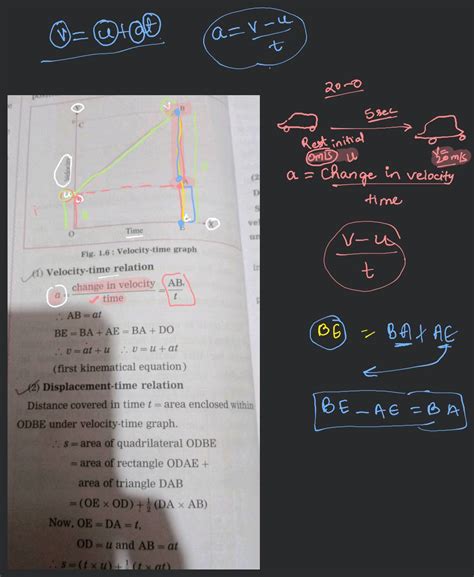 v = u + at
a = v - u / t
20-0
5sec
Rest initial
0m/s u
v=
20 m/s
a = Change in velocity
time
v - u
t
BE = BA + AE
BE - AE = BA
Y
C
B
Velocity
D
A
O
Time
E
X
Fig. 1.6 : Velocity-time graph
(1) Velocity-time relation
a = change in velocity / time = AB / t
∴ AB = at
BE = BA + AE = BA + DO
∴ v = at + u ∴ v = u + at
(first kinematical equation)
(2) Displacement-time relation
Distance covered in time t = area enclosed within
ODBE under velocity-time graph.
∴ s = area of quadrilateral ODBE
= area of rectangle ODAE +
area of triangle DAB
= (OE × OD) + ½ (DA × AB)
Now, OE = DA = t,
OD = u and AB = at
∴ s = (t × u) + ½ (t × at)